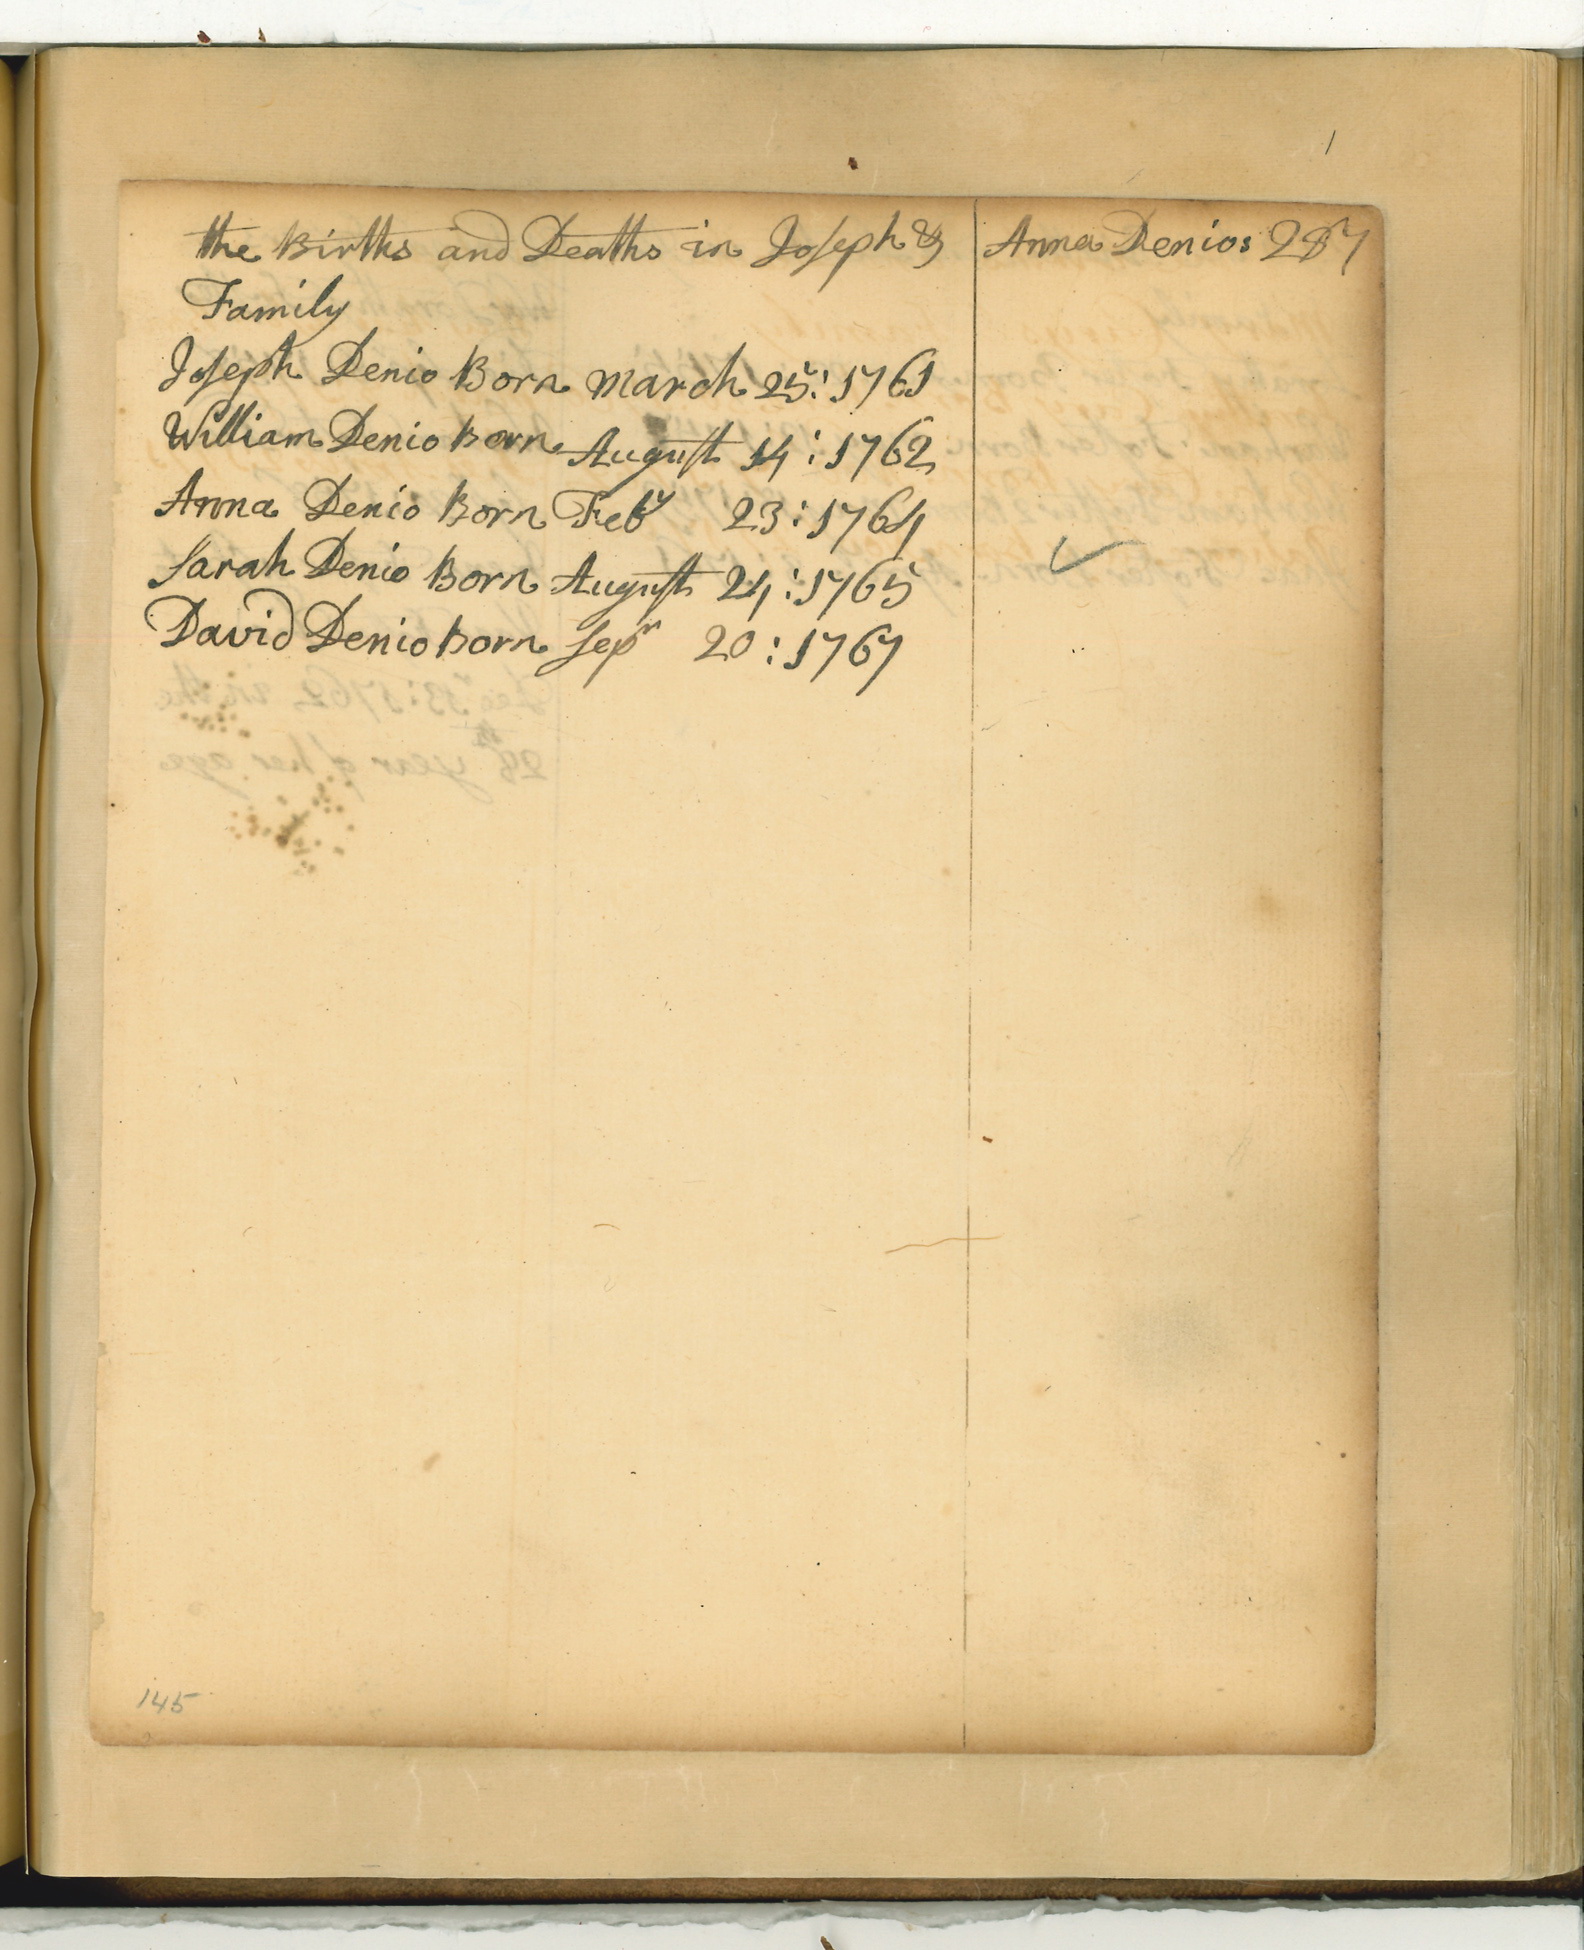 1
the Births and Deaths in Joseph & Anna Denios 287
Family
Joseph Denio Born March 25 : 1761
William Denio Born August 14 : 1762
Anna Denio Born Feby 23 : 1764
Sarah Denio Born August 24 : 1765
David Denio Born Sepr 20 : 1767
145